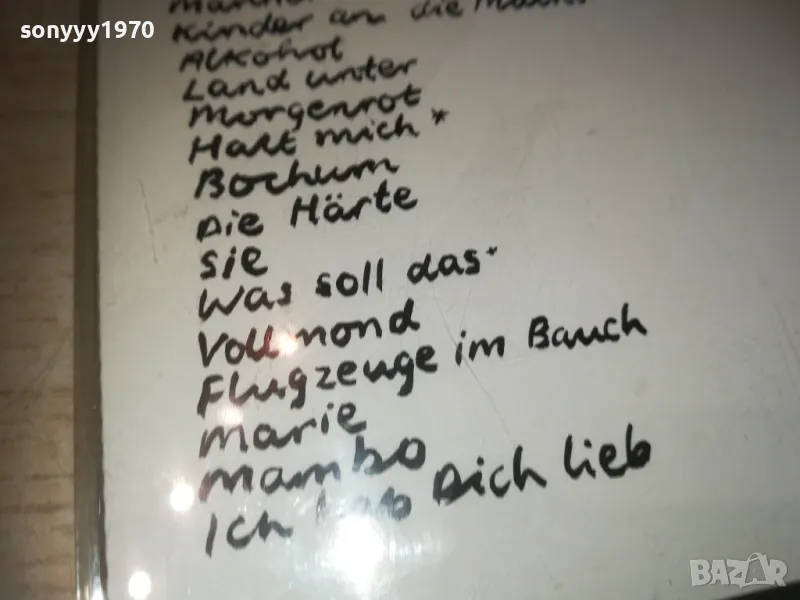 sonyyy1970
Kinder an die Macht
Alkohol
Land unter
Morgenrot
Halt mich *
Bochum
Die Härte
sie
Was soll das*
Vollmond
Flugzeuge im Bauch
Marie
Mambo
Ich lieb Dich lieb
BAZAR